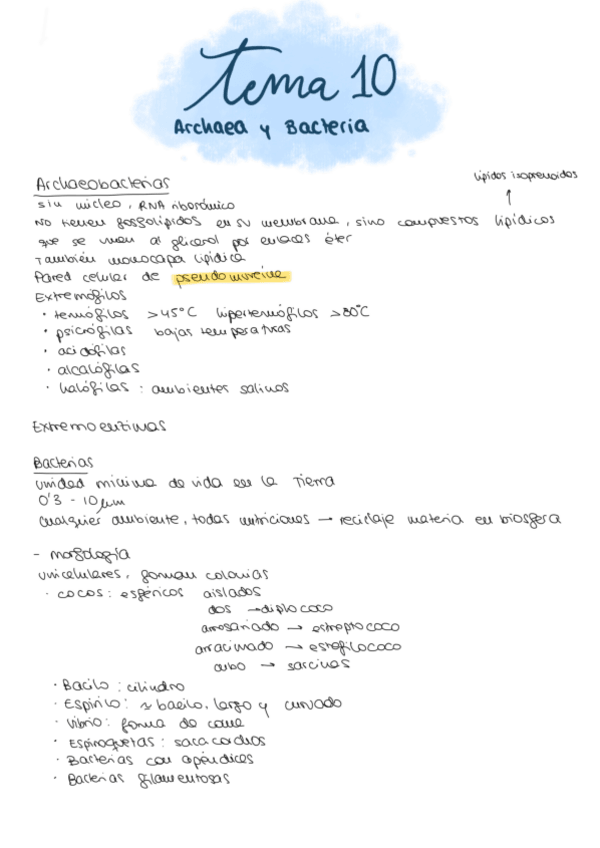 tema 10
Archaea y Bacteria
Archaeobacterias
lípidos isoprenoides
↑
sin núcleo, RNA ribosómico
No tienen fosfolípidos en su membrana, sino compuestos lipídicos
que se unen al glicerol por enlaces éter
También monocapa lipídica
Pared celular de pseudomureína
Extremófilos
· termófilos >45°C hipertermófilos >80°C
· psicrófilas bajas temperaturas
· acidófilas
· alcalófilas
· halófilas : ambientes salinos
Extremoenzimas
Bacterias
unidad mínima de vida en la Tierra
0'3 - 10 μm
cualquier ambiente, todas nutriciones → reciclaje materia en biosfera
- morfología
unicelulares, forman colonias
· cocos : esféricos aislados
dos → diplococo
arrosariado → estreptococo
arracimado → estafilococo
cubo → sarcinas
· Bacilo : cilindro
· Espirilo : bacilo, largo y curvado
· Vibrio : forma de coma
· Espiroquetas : sacacorchos
· Bacterias con apéndices
· Bacterias filamentosas